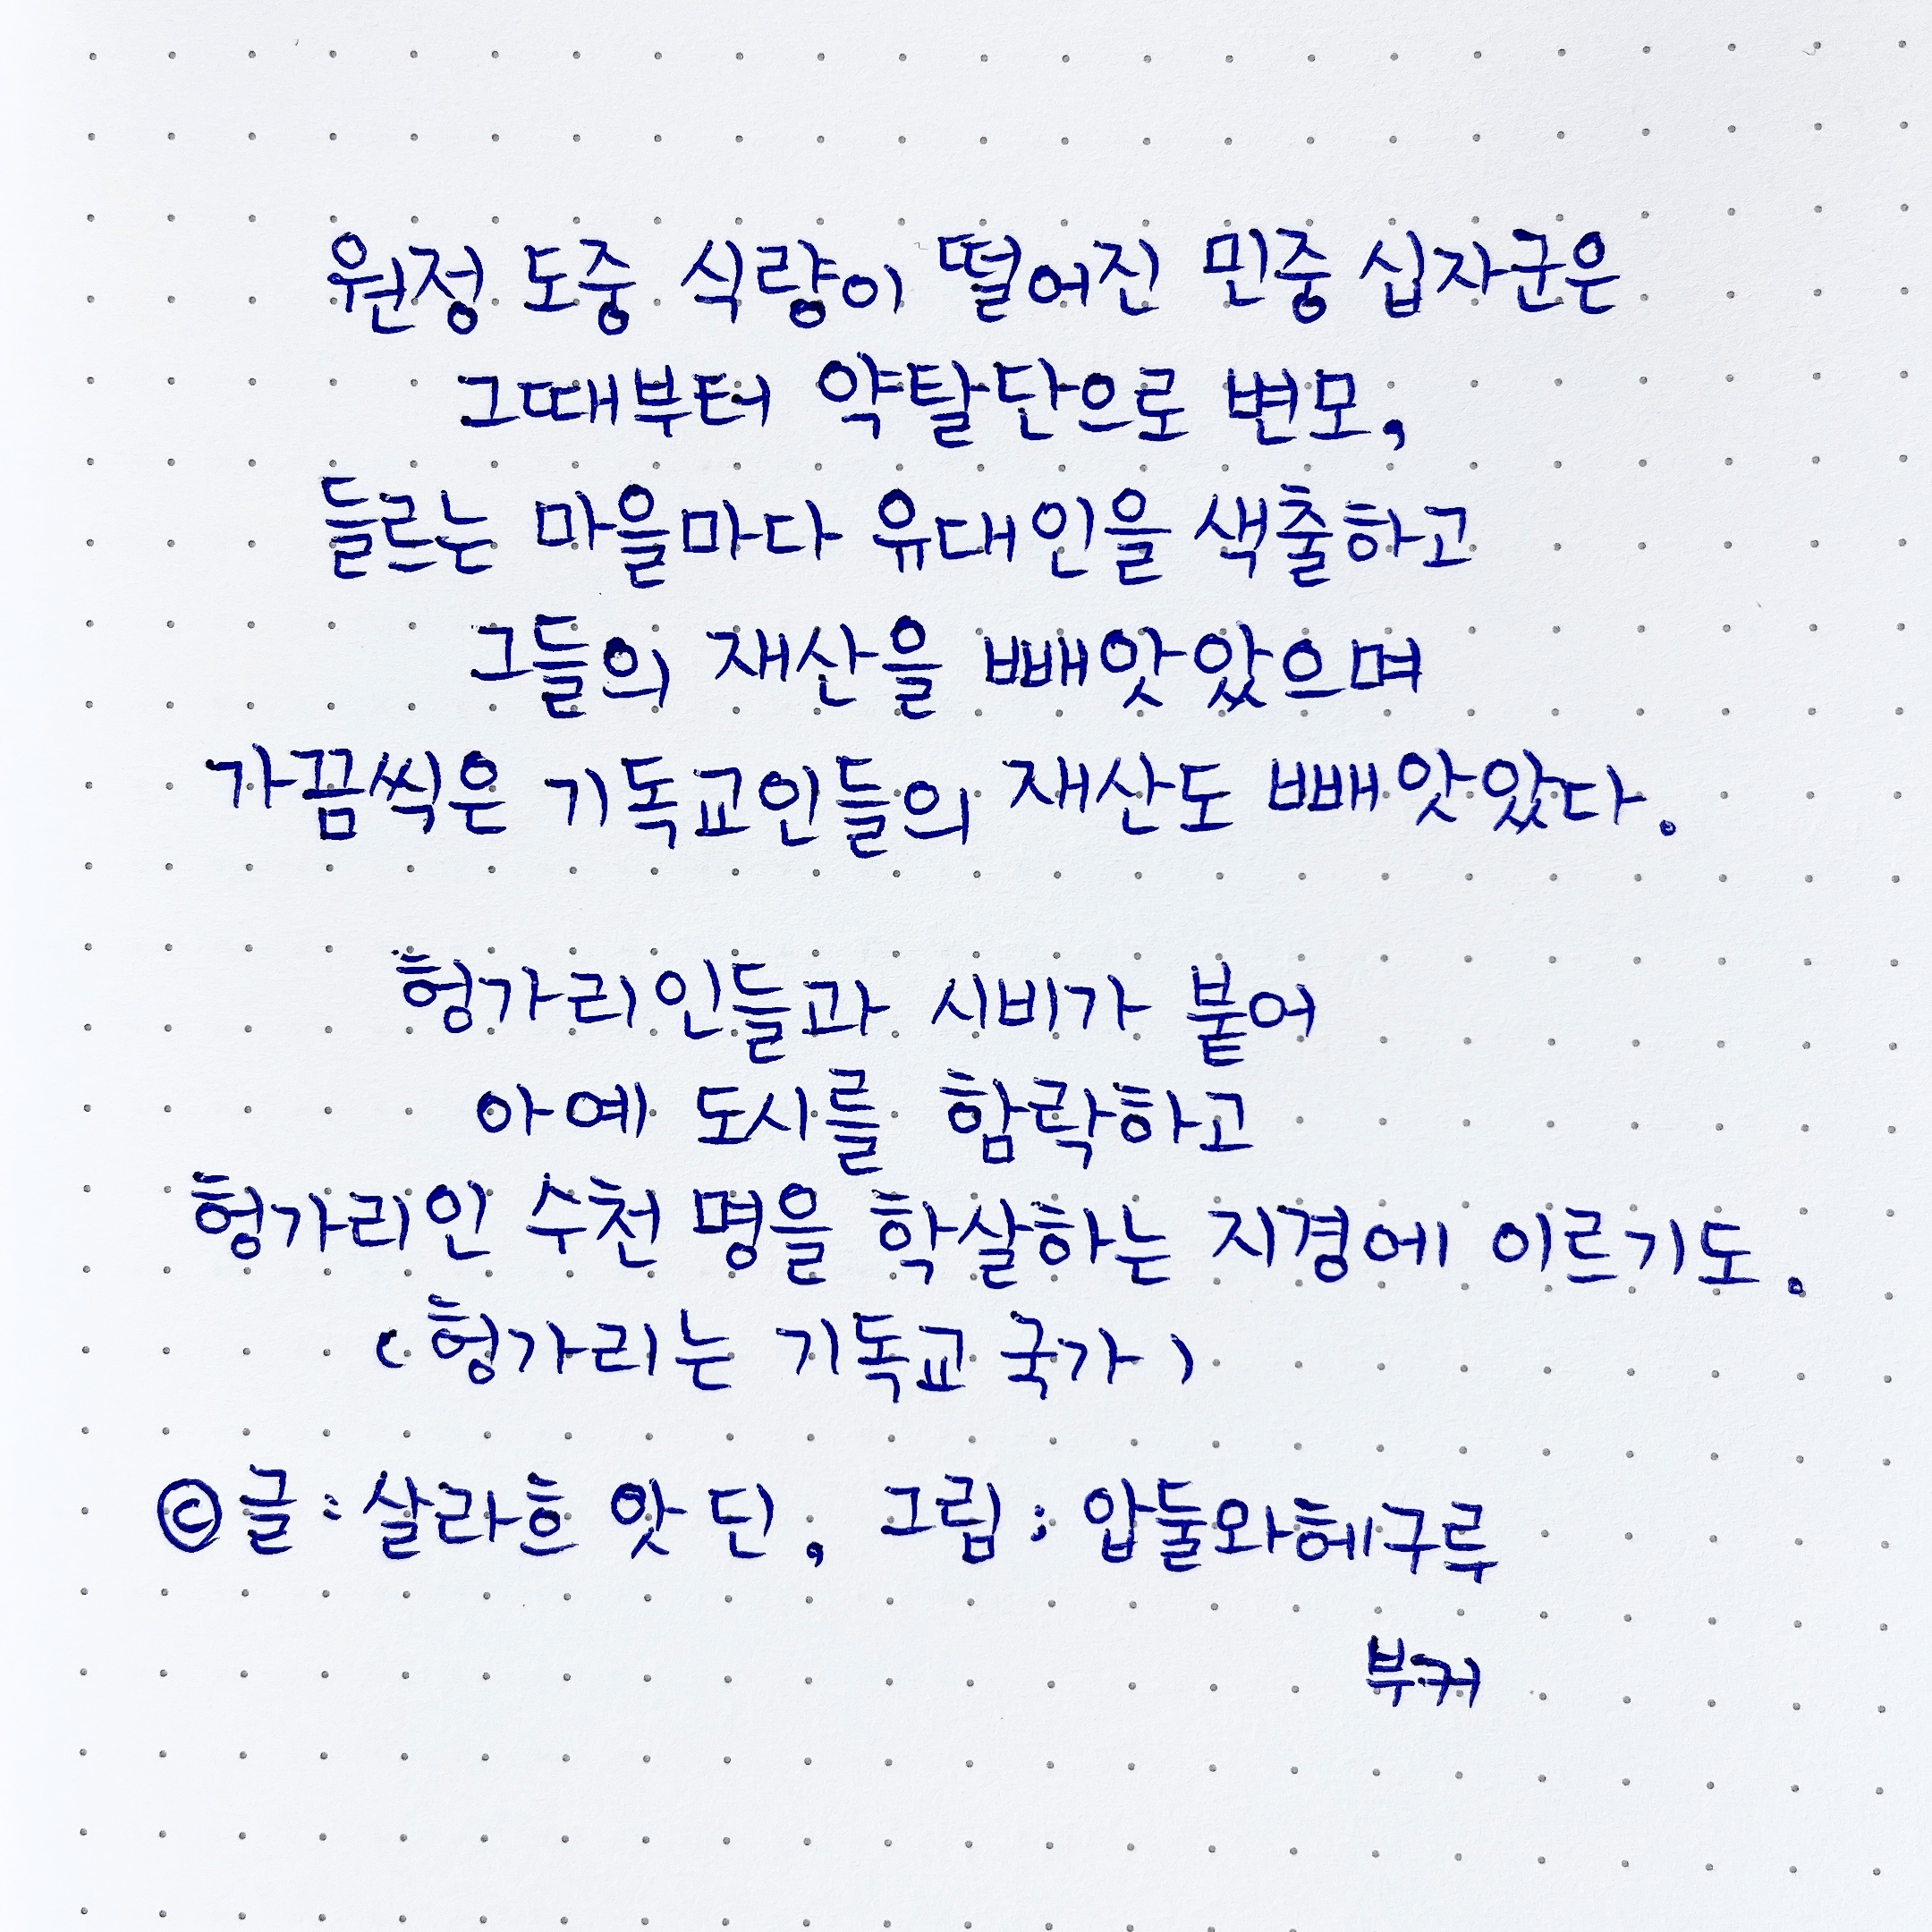 원정 도중 식량이 떨어진 민중 십자군은
그때부터 약탈단으로 변모,
들르는 마을마다 유대인을 색출하고
그들의 재산을 빼앗았으며
가끔씩은 기독교인들의 재산도 빼앗았다.
헝가리인들과 시비가 붙어
아예 도시를 함락하고
헝가리인 수천 명을 학살하는 지경에 이르기도.
(헝가리는 기독교 국가)
ⓒ글: 살라흐 앗 딘, 그림: 압둘와헤구루
부커